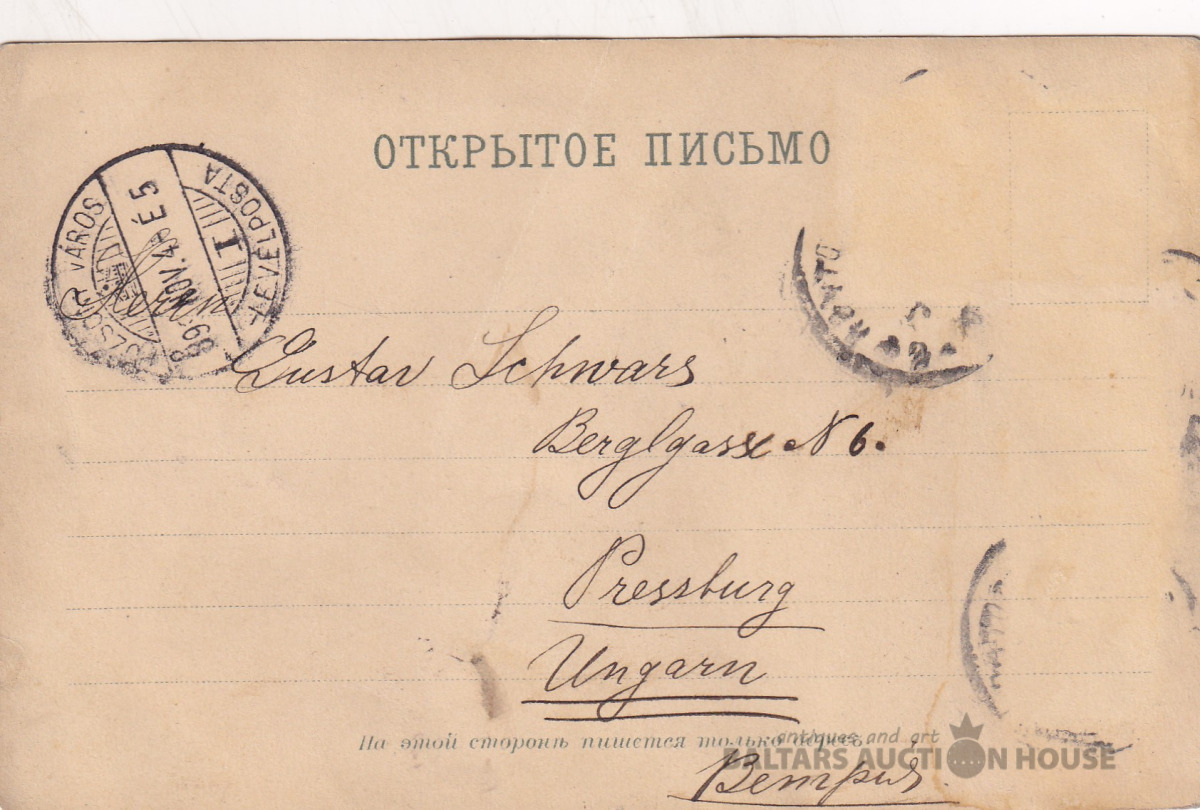 ОТКРЫТОЕ ПИСЬМО
VÁROS
LEVÉLPOSTA
I
NOV. 4 É 5
Herrn
Gustav Schwarz
Berglgasse N 6.
Pressburg
Ungarn
На этой сторонѣ пишется только адресъ.
Венгрия
antiques and art
BALTARS AUCTION HOUSE